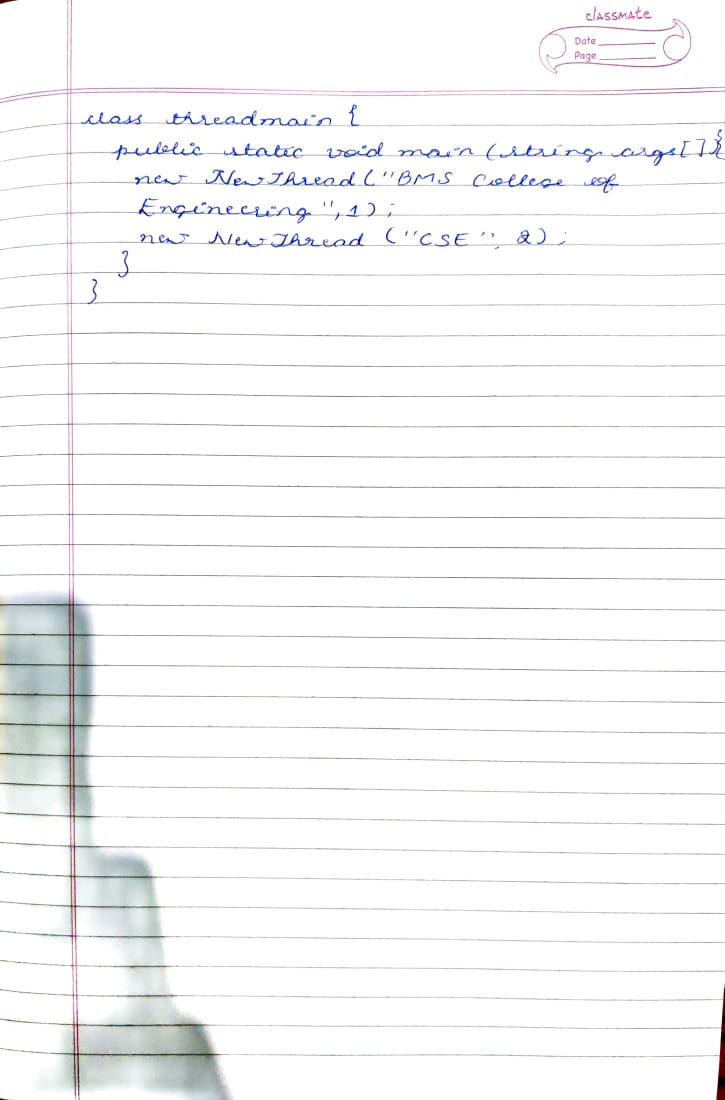 classmate
Date
Page
class threadmain {
public static void main (string args[]){
new NewThread ("BMS College of
Engineering", 1);
new NewThread ("CSE", 2);
}
}